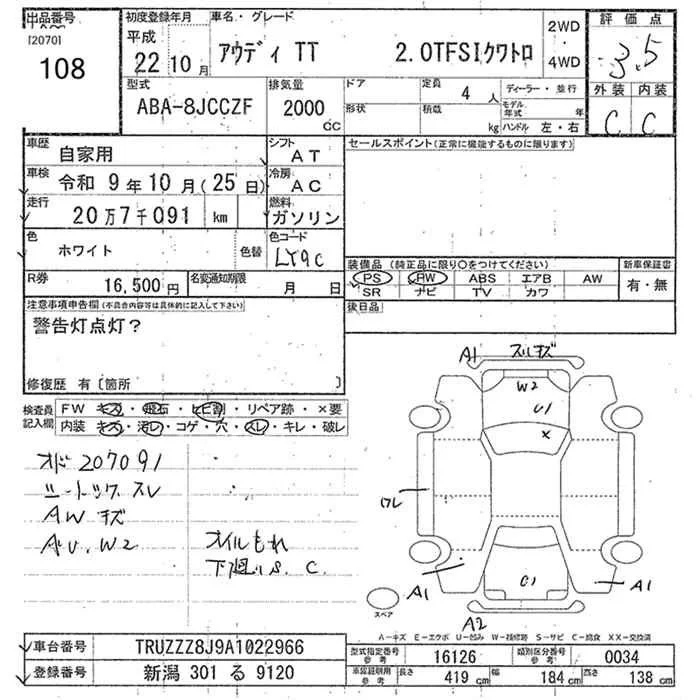 出品番号
[2070]
108
初度登録年月
平成
22 10月
車名・グレード
アウディ TT 2.0TFSIクワトロ
2WD
・
4WD
評価点
3.5
外装 内装
C C
型式
ABA-8JCCZF
排気量
2000
CC
ドア
形状
定員
4 人
積載
kg
ディーラー・並行
モデル年式 年
ハンドル 左・右
車歴
自家用
シフト
AT
車検
令和 9年10月(25日)
冷房
AC
走行
20万7千091 km
燃料
ガソリン
色
ホワイト
色替
色コード
LY9C
R券
16,500円
名変通知期限
月 日
セールスポイント(正常に機能するものに限ります)
装備品 (純正品に限り○をつけてください)
新車保証書
PS PW ABS エアB AW
SR ナビ TV カワ
有・無
後日品
注意事項申告欄(不具合内容等は具体的に記入して下さい)
警告灯点灯?
修復歴 有〔箇所 〕
検査員記入欄
FW キズ・飛石・ヒビ割・リペア跡・×要
内装 キズ・汚レ・コゲ・穴・スレ・キレ・破レ
オド207091
シートックスレ
AWキズ
AU.W2
オイルもれ
下廻りS.C.
A1 スリキズ
W2
U1
×
ワレ
C1
A1
A1
A2
スペア
A-キズ E-エクボ U-凹み W-補修跡 S-サビ C-腐食 XX-交換済
車台番号
TRUZZZ8J9A1022966
登録番号
新潟 301 る 9120
型式指定番号
参考
16126
類別区分番号
参考
0034
車両証明記録
参考
長さ
419 cm
幅
184 cm
高さ
138 cm